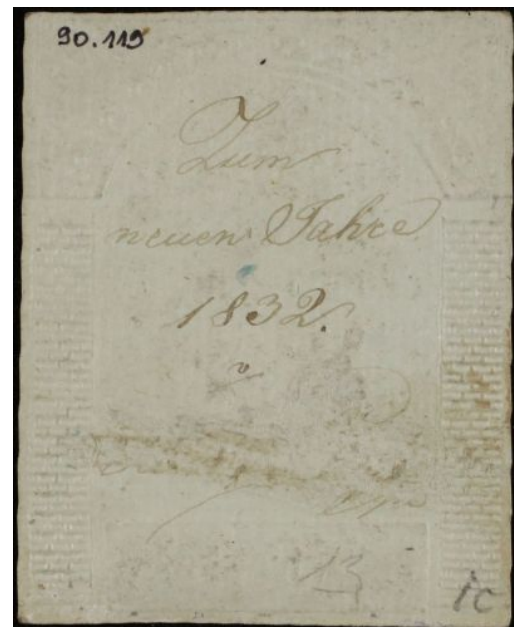 90.119
Zum
neuen Jahre
1832.
13
ic